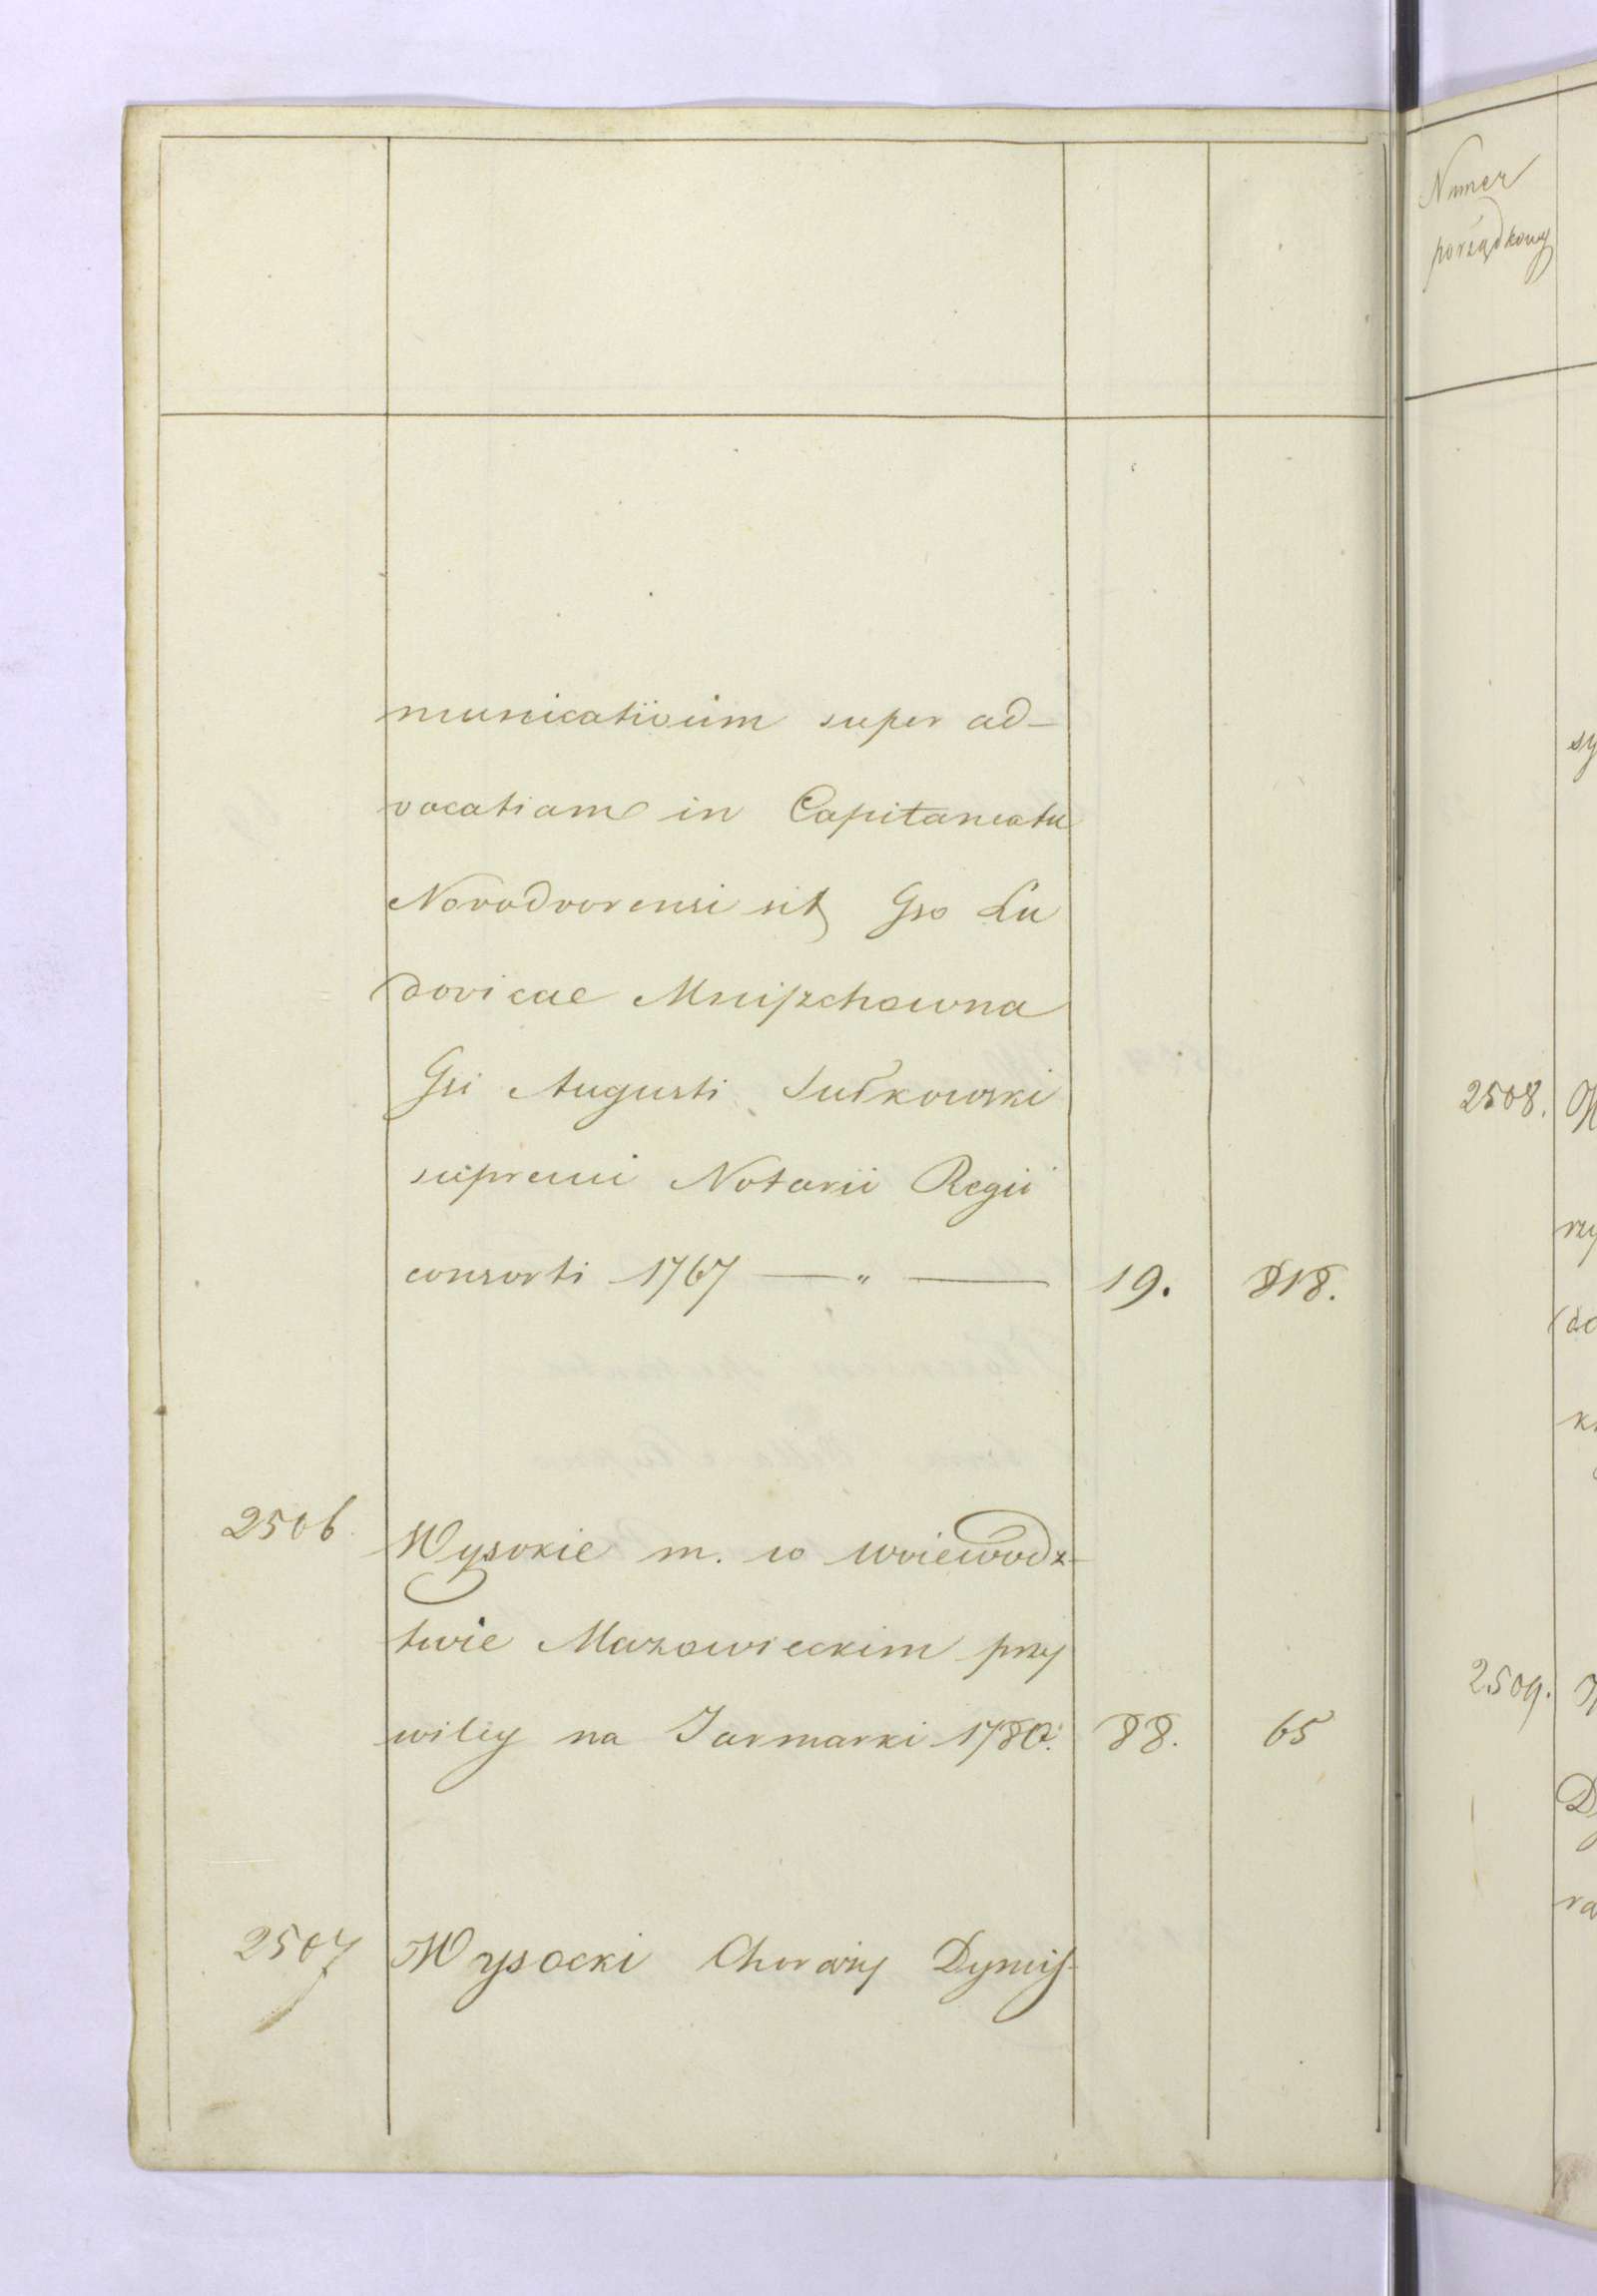 municativum super ad-
vocatiam in Capitaneatu
Novodvorensi sit Gso Lu
dovicae Mniszchowna
Gsi Augusti Sułkowski
supremi Notarii Regii
consorti 1767 — " — 19. 818.
2506. Wysokie m. w woiewodz-
twie Mazowieckim przy
wiley na Jarmarki 1780. 88. 65
2507 Wysocki Chorąży Dymis-
Numer
porządkowy
sy
2508.
(do
2509.
D
ra